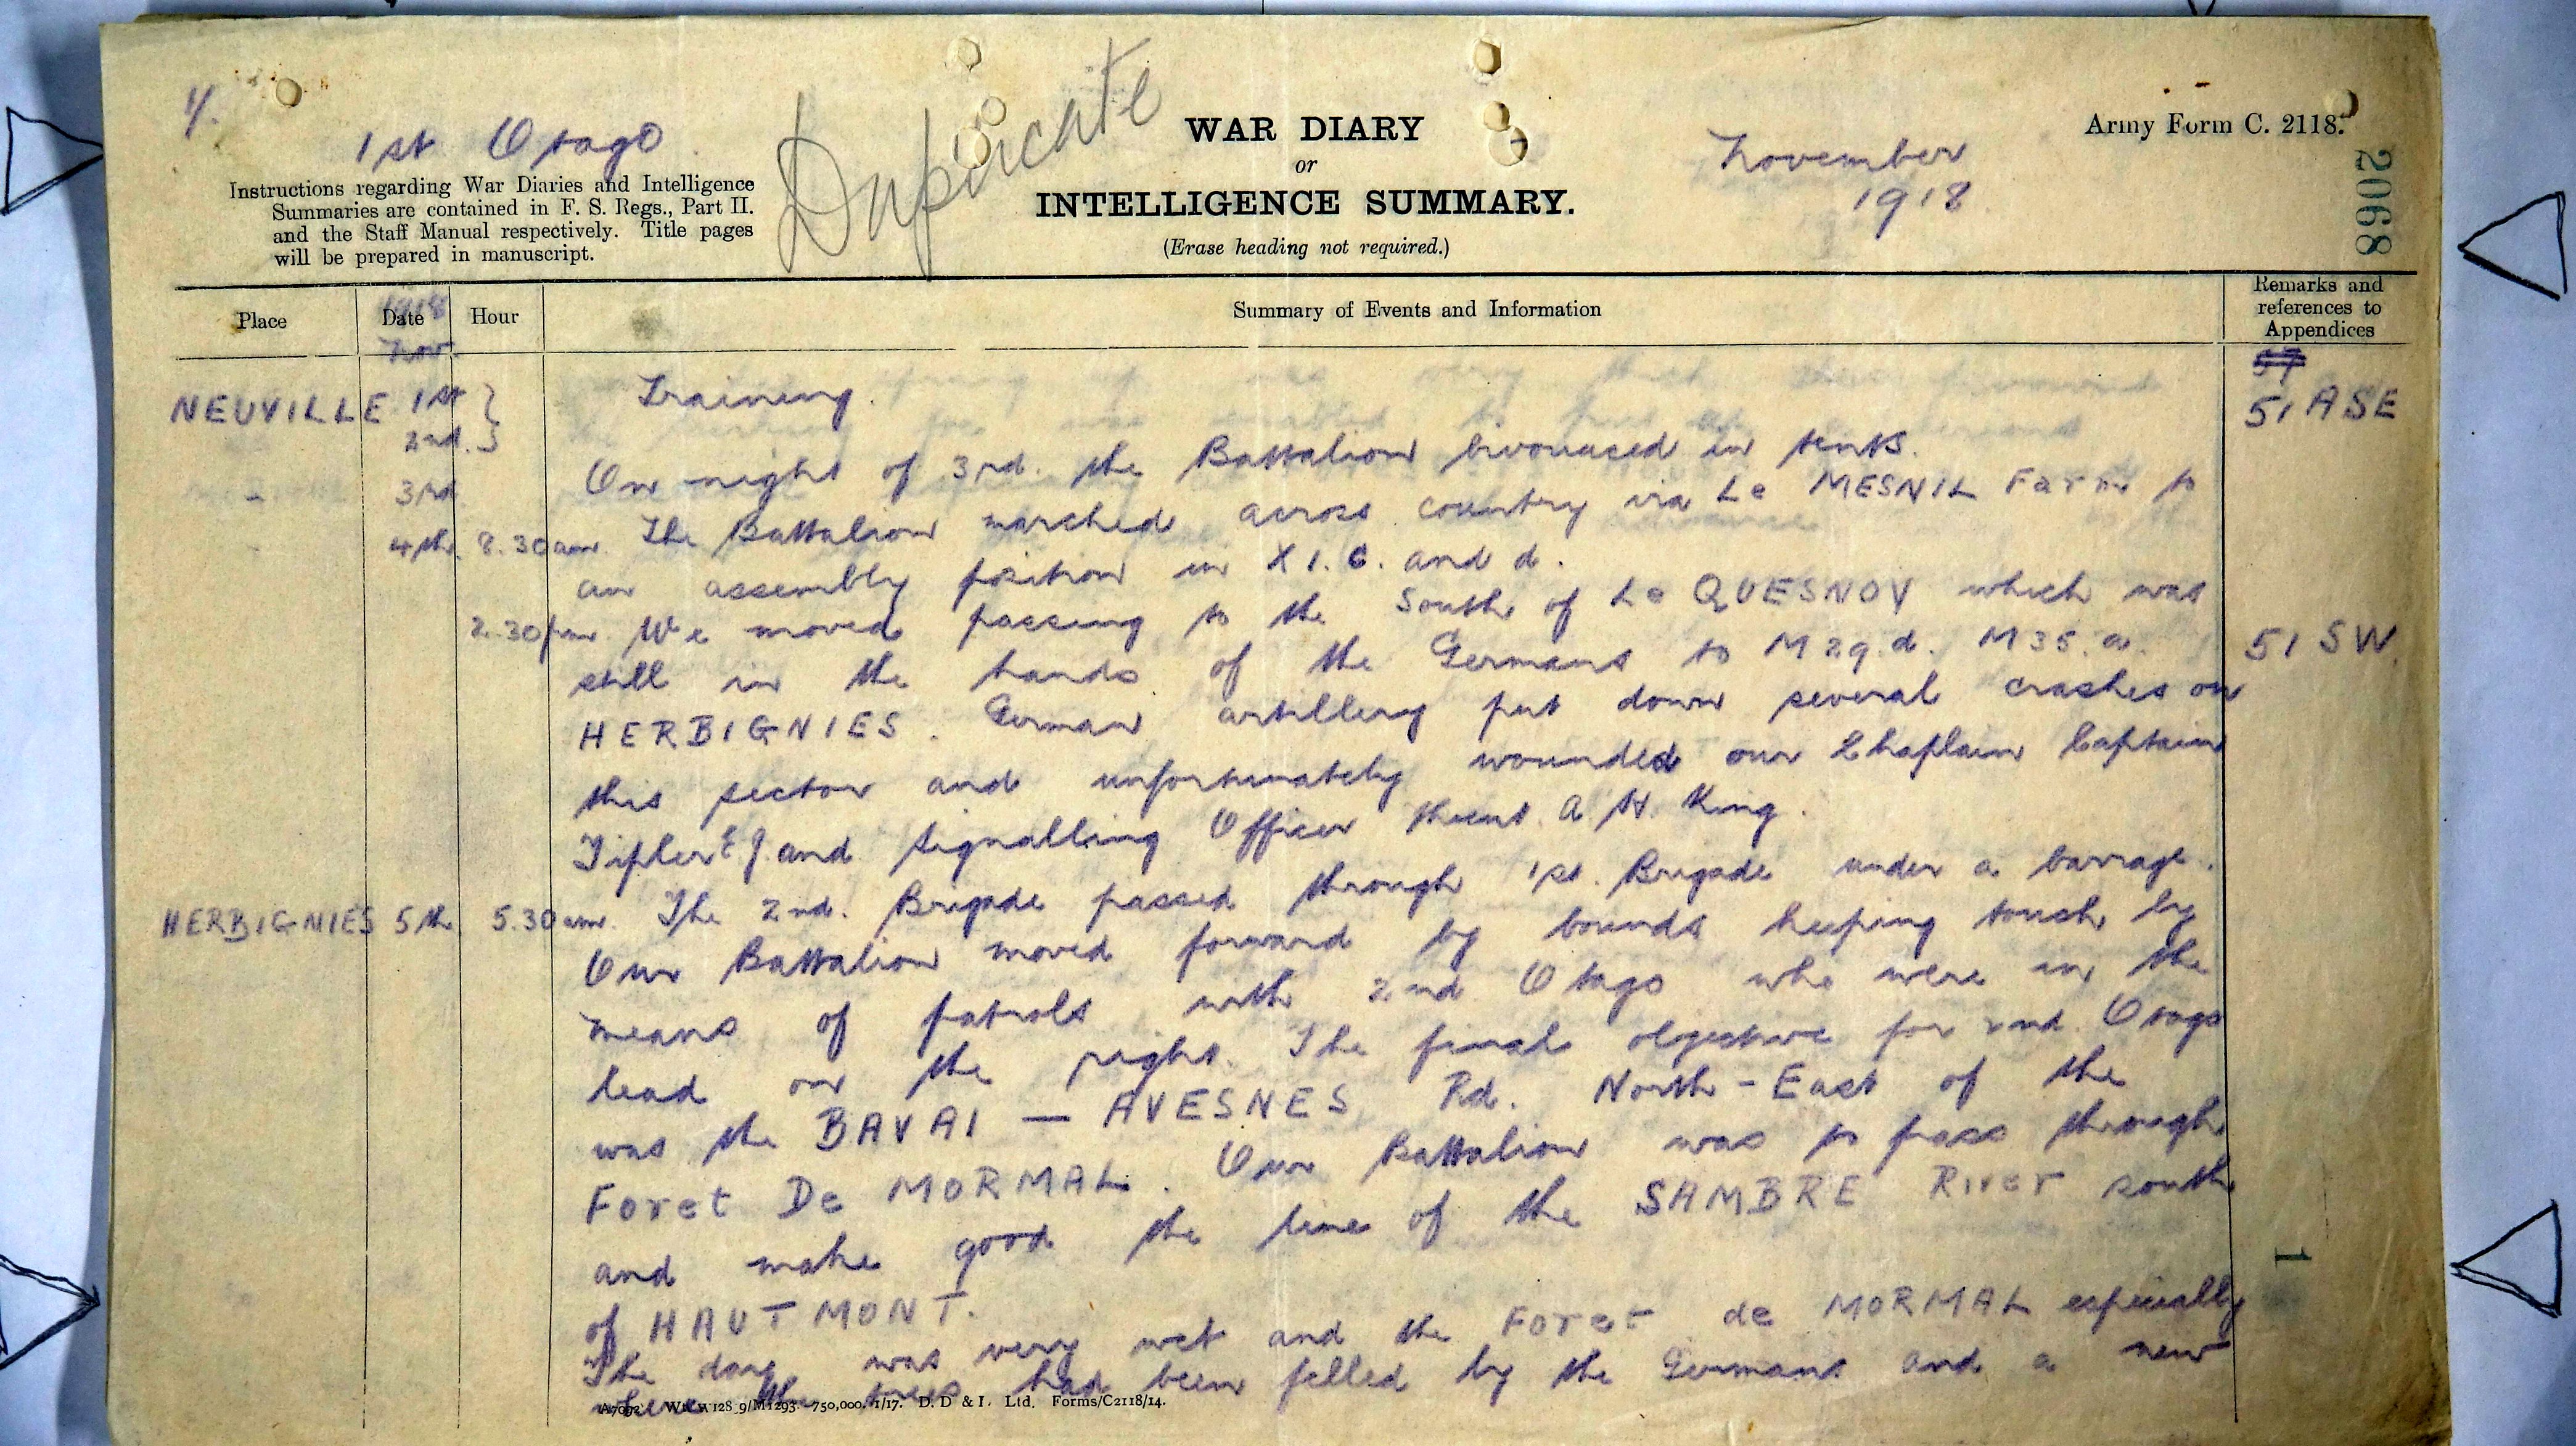 1/.
1st Otago
Duplicate
WAR DIARY
or
INTELLIGENCE SUMMARY.
(Erase heading not required.)
November
1918
Army Form C. 2118.
2068
Instructions regarding War Diaries and Intelligence
Summaries are contained in F. S. Regs., Part II.
and the Staff Manual respectively. Title pages
will be prepared in manuscript.
Place Date Hour Summary of Events and Information Remarks and
references to
Appendices
1918
Nov.
NEUVILLE 1st } Training. 51 ASE
2nd. }
- 3rd On night of 3rd. the Battalion bivouaced in tents.
- 4th. 8.30am. The Battalion marched across country via Le MESNIL Farm to
an assembly position in X 1. c. and d.
2.30pm. We moved passing to the South of Le QUESNOY which was
still in the hands of the Germans to M29.d. M35.a. 51 SW.
HERBIGNIES. German artillery put down several crashes on
this sector and unfortunately wounded our Chaplain Captain
Tipler E J. and Signalling Officer Lieut. A H. King.
HERBIGNIES 5th 5.30am. The 2nd. Brigade passed through 1st. Brigade under a barrage.
Our Battalion moved forward by bounds keeping touch by
means of patrols with 2nd Otago who were in the
lead on the right. The final objective for 2nd. Otago
was the BAVAI — AVESNES Rd. North-East of the
Foret De MORMAL. Our Battalion was to pass through
and make good the line of the SAMBRE River south
of HAUTMONT.
The day was very wet and the Foret de MORMAL especially
where the trees had been felled by the Germans and a new
1
A7092. Wt. W128.9/M1293. 750,000. 1/17. D. D & L. Ltd. Forms/C2118/14.